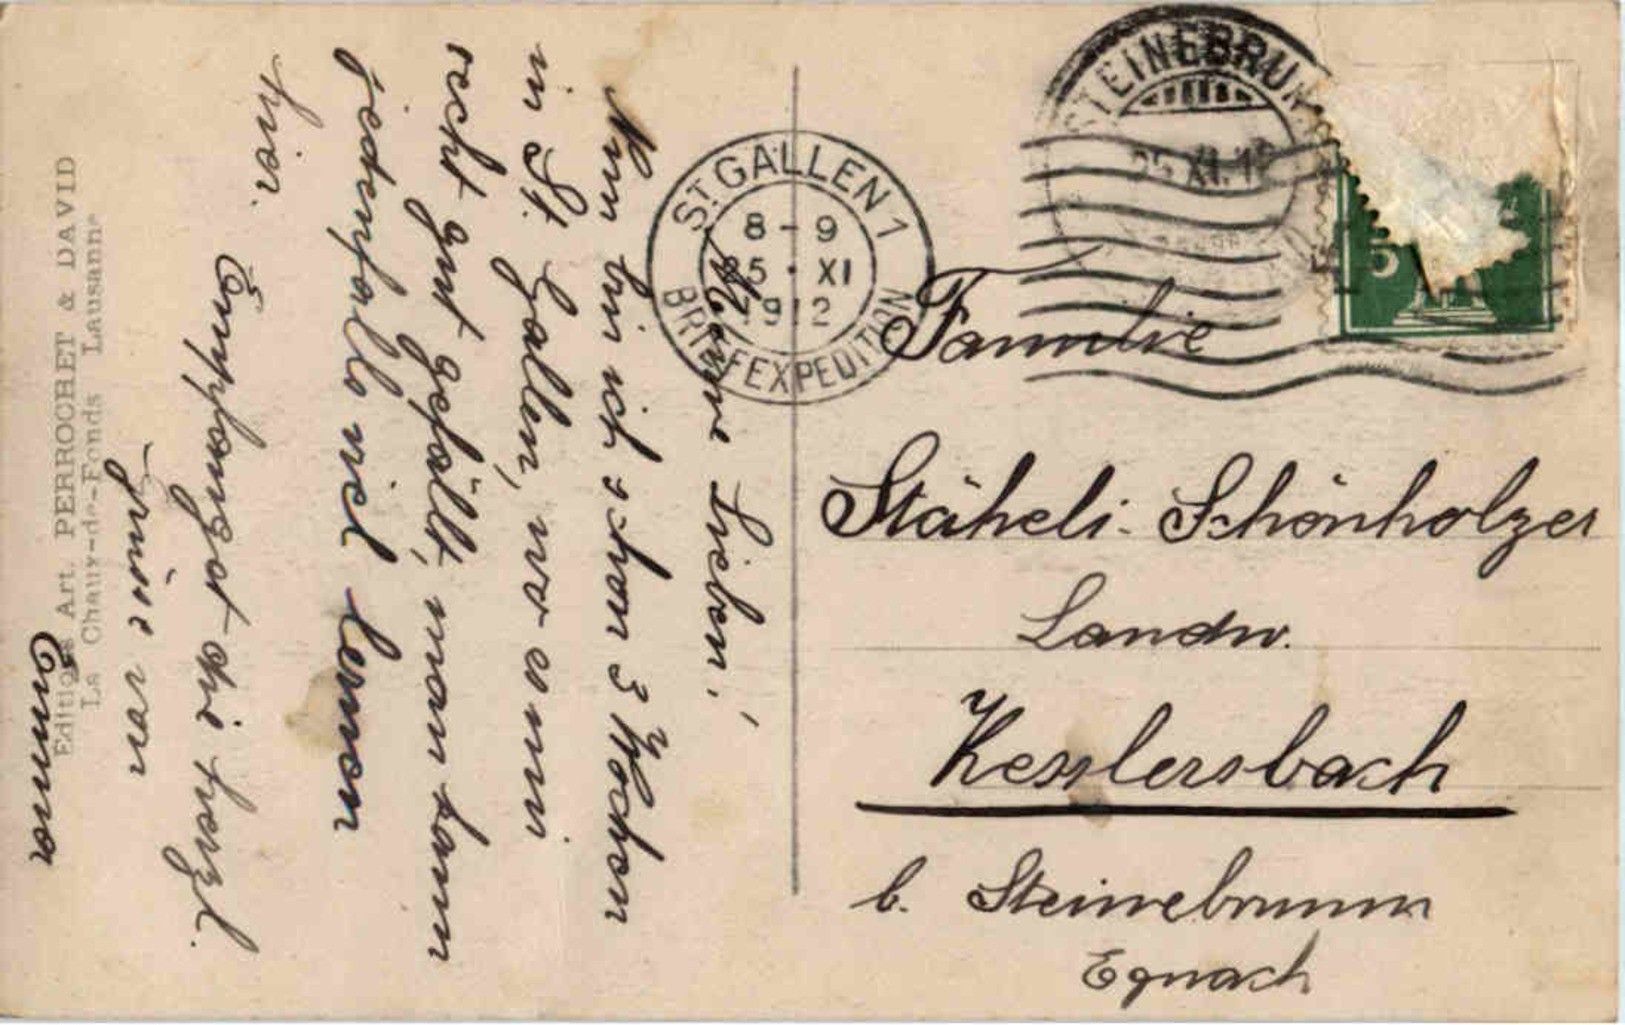 Meine Lieben!
Nun bin ich schon 3 Wochen
in St. Gallen, wo es mir
recht gut gefällt, man kann
jedenfalls viel lernen
hier.
Empfanget die herzl.
Grüsse von
Emma
Editions Art. PERROCHET & DAVID
La Chaux-de-Fonds Lausanne
ST GALLEN 1
8-9
25. XI
1912
BRIEFEXPEDITION
STEINEBRUNN
25. XI. 12
5
Familie
Stäheli-Schönholzer
Landw.
Kesslersbach
b. Steinebrunn
Egnach